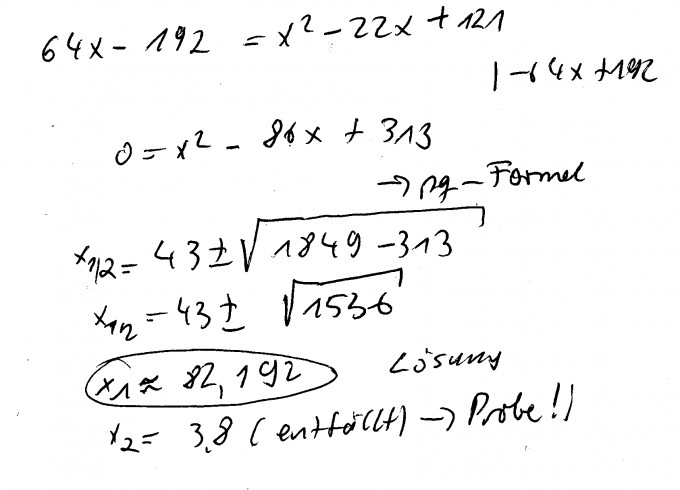 64x - 192 = x² - 22x + 121
| -64x + 192
0 = x² - 86x + 313
→ pq - Formel
x₁/₂ = 43 ± √1849 - 313
x₁/₂ = 43 ± √1536
x₁ ≈ 82,192 Lösung
x₂ = 3,8 (entfällt) → Probe!!